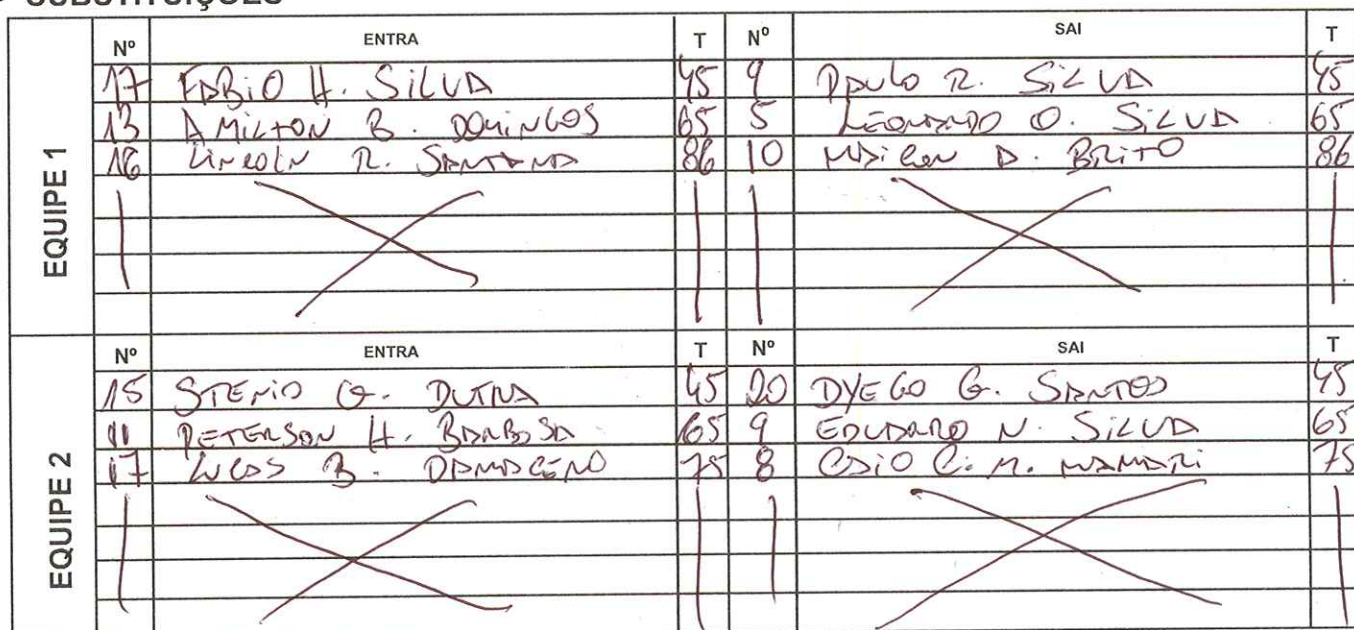 SUBSTITUIÇÕES
EQUIPE 1
Nº ENTRA T Nº SAI T
17 FABIO H. SILVA 45 9 PAULO R. SILVA 45
13 AMILTON B. DOMINGOS 65 5 LEONARDO O. SILVA 65
16 LINCOLN R. SANTANA 86 10 MAICON A. BRITO 86
EQUIPE 2
Nº ENTRA T Nº SAI T
15 STENIO G. DUTRA 45 20 DYEGO G. SANTOS 45
11 PETERSON H. BARBOSA 65 9 EDUARDO N. SILVA 65
17 LUCAS B. DAMASCENO 75 8 CAIO C. M. MAMARI 75